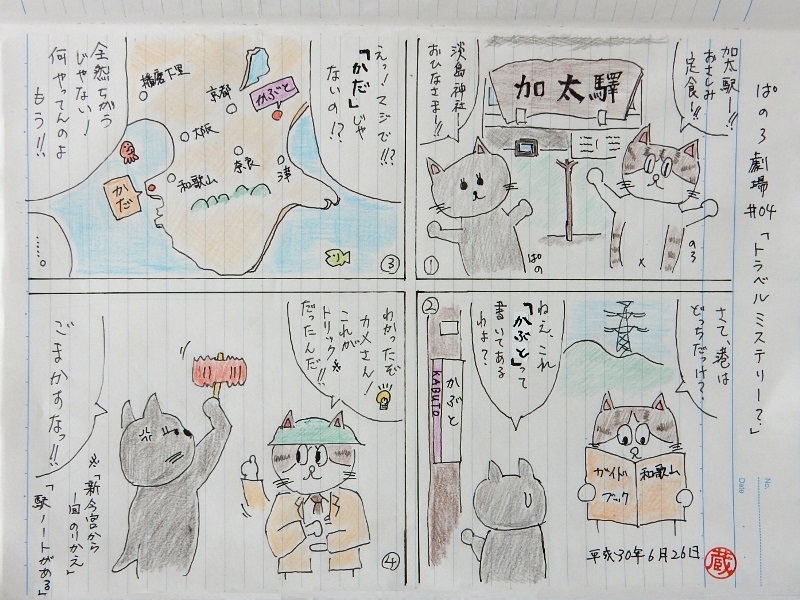 ぱのろ劇場
#04「トラベルミステリー？」
加太駅ー!!
おさしみ
定食ー!!
加太驛
淡島神社ー!
おひなさまー!!
のろ
ぱの
①
さて、港は
どっちだっけ？
ねえ、これ
「かぶと」って
書いてある
わよ？
かぶと
KABUTO
和歌山
ガイド
ブック
平成30年6月26日
蔵
②
えっ！マジで!!?
「かだ」じゃ
ないの!?
かぶと
京都
播磨下里
大阪
奈良
津
和歌山
かだ
全然ちがう
じゃない！
何やってんのよ
もう!!
……。
③
わかったぞ
カメさん！
これが
トリック※
だったんだ!!
ごまかすなっ!!
※「新今宮から
一回のりかえ」
「駅ノートがある」
④
No.
Date